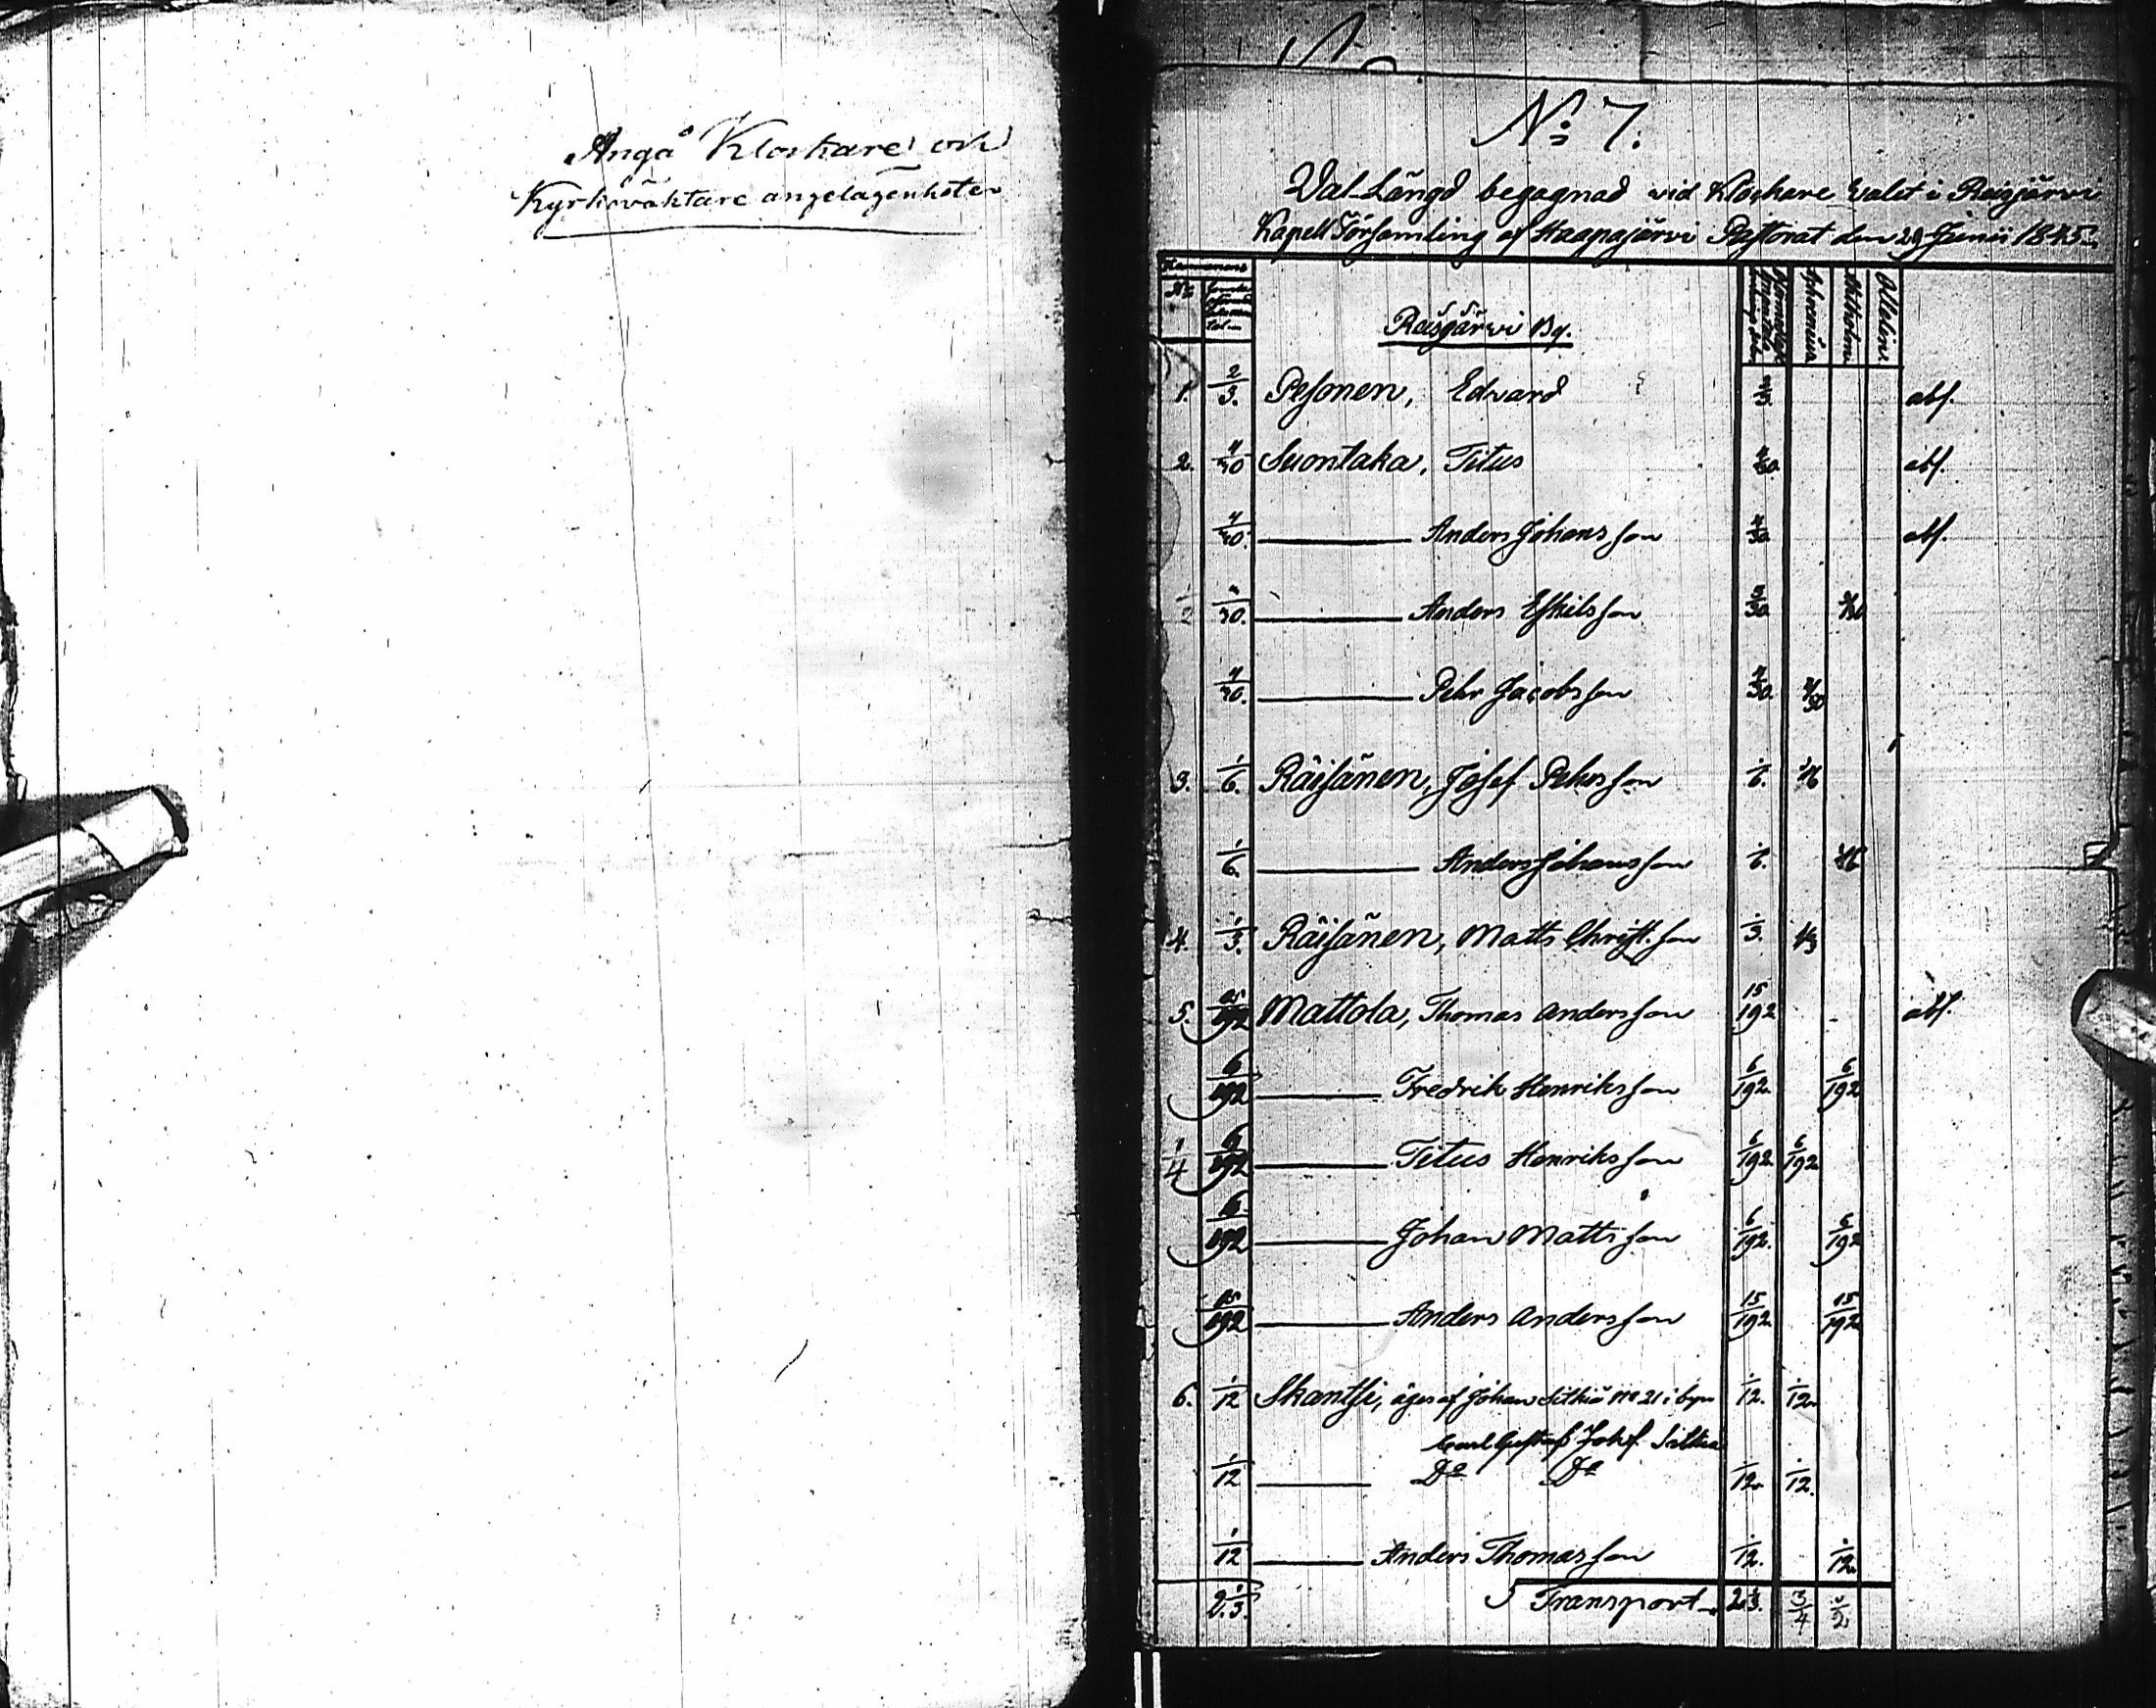 Angå Klockare och
Kyrkovaktare angelägenheter
No 7.
Val-Längd begagnad vid Klockare valet i Reisjärvi
Kapell Församling af Haapajärvi Pastorat den 29 Junii 1845.
Hemmanens
No
Reisjärvi By.
1. 2/3. Pesonen, Edvard 2/3. abs.
2. 4/30 Suontaka, Titus 4/30. abs.
4/30. Anders Johansson 4/30 abs.
1/2 /30. Anders Eskilsson /30 /30
4/30. Pehr Jacobsson 4/30 4/30
3. 1/6. Räisänen, Josef Pehrsson 1/6. 1/6
1/6. Anders Johansson 1/6. 1/6
4. 1/3. Räisänen, Matts Christ.son 1/3. 1/3
5. 15/192 Mattola, Thomas Andersson 15/192 abs.
6/192 Fredrik Henriksson 6/192 6/192
1/4 6/192 Titus Henriksson 6/192 6/192
6/192 Johan Mattsson 6/192. 6/192
15/192 Anders Andersson 15/192 15/192
6. 1/12 Skantsi, äges af Johan Sitkiä No 21 i byn 1/12. 1/12.
Carl Gustaf Johs. Sitkiä
1/12 Do Do 1/12. 1/12.
1/12 Anders Thomasson 1/12. 1/12.
2 1/3. Transport 2 1/3. 3/4 1/2